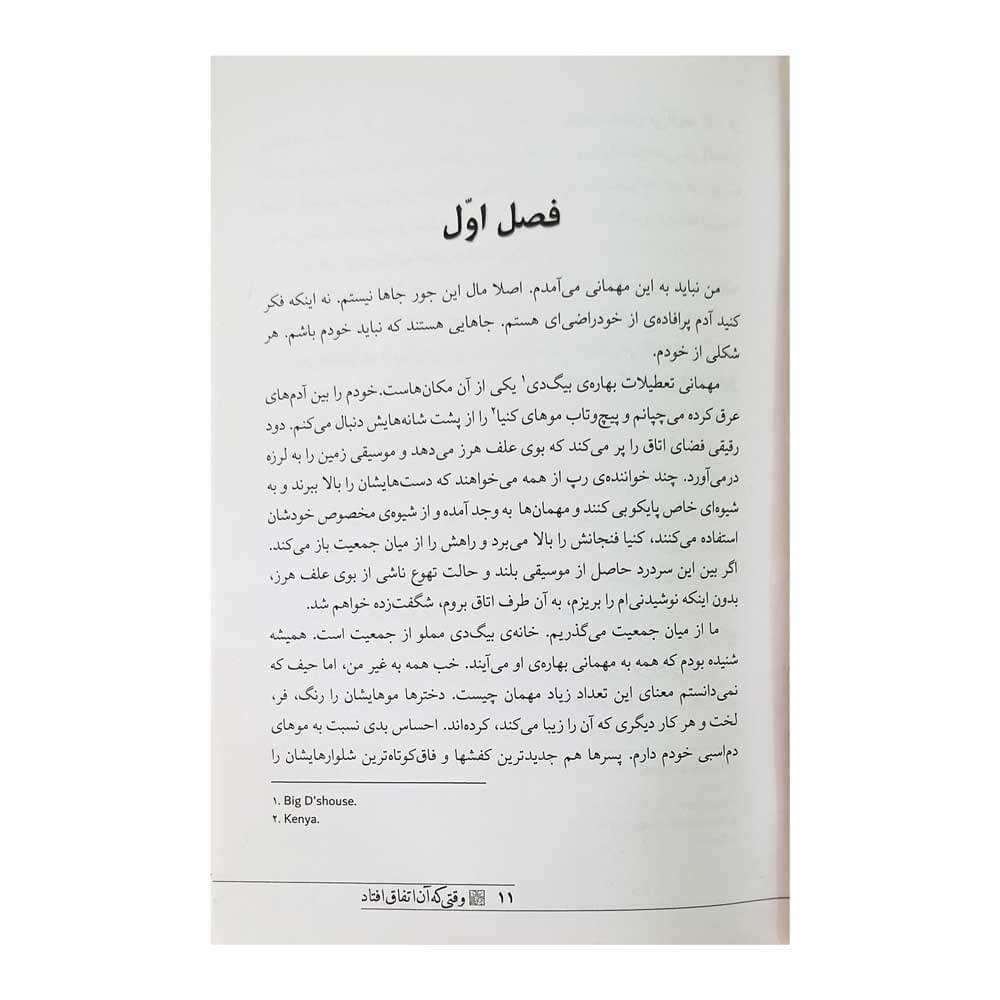 فصل اوّل
من نباید به این مهمانی می‌آمدم. اصلا مال این جور جاها نیستم. نه اینکه فکر
کنید آدم پرافاده‌ی از خودراضی‌ای هستم. جاهایی هستند که نباید خودم باشم. هر
شکلی از خودم.
مهمانی تعطیلات بهاره‌ی بیگ‌دی۱ یکی از آن مکان‌هاست.خودم را بین آدم‌های
عرق کرده می‌چپانم و پیچ‌وتاب موهای کنیا۲ را از پشت شانه‌هایش دنبال می‌کنم. دود
رقیقی فضای اتاق را پر می‌کند که بوی علف هرز می‌دهد و موسیقی زمین را به لرزه
درمی‌آورد. چند خواننده‌ی رپ از همه می‌خواهند که دست‌هایشان را بالا ببرند و به
شیوه‌ای خاص پایکوبی کنند و مهمان‌ها به وجد آمده و از شیوه‌ی مخصوص خودشان
استفاده می‌کنند، کنیا فنجانش را بالا می‌برد و راهش را از میان جمعیت باز می‌کند.
اگر بین این سردرد حاصل از موسیقی بلند و حالت تهوع ناشی از بوی علف هرز،
بدون اینکه نوشیدنی‌ام را بریزم، به آن طرف اتاق بروم، شگفت‌زده خواهم شد.
ما از میان جمعیت می‌گذریم. خانه‌ی بیگ‌دی مملو از جمعیت است. همیشه
شنیده بودم که همه به مهمانی بهاره‌ی او می‌آیند. خب همه به غیر من، اما حیف که
نمی‌دانستم معنای این تعداد زیاد مهمان چیست. دخترها موهایشان را رنگ، فر،
لخت و هر کار دیگری که آن را زیبا می‌کند، کرده‌اند. احساس بدی نسبت به موهای
دم‌اسبی خودم دارم. پسرها هم جدیدترین کفشها و فاق‌کوتاه‌ترین شلوارهایشان را
۱. Big D'shouse.
۲. Kenya.
۱۱ وقتی که آن اتفاق افتاد